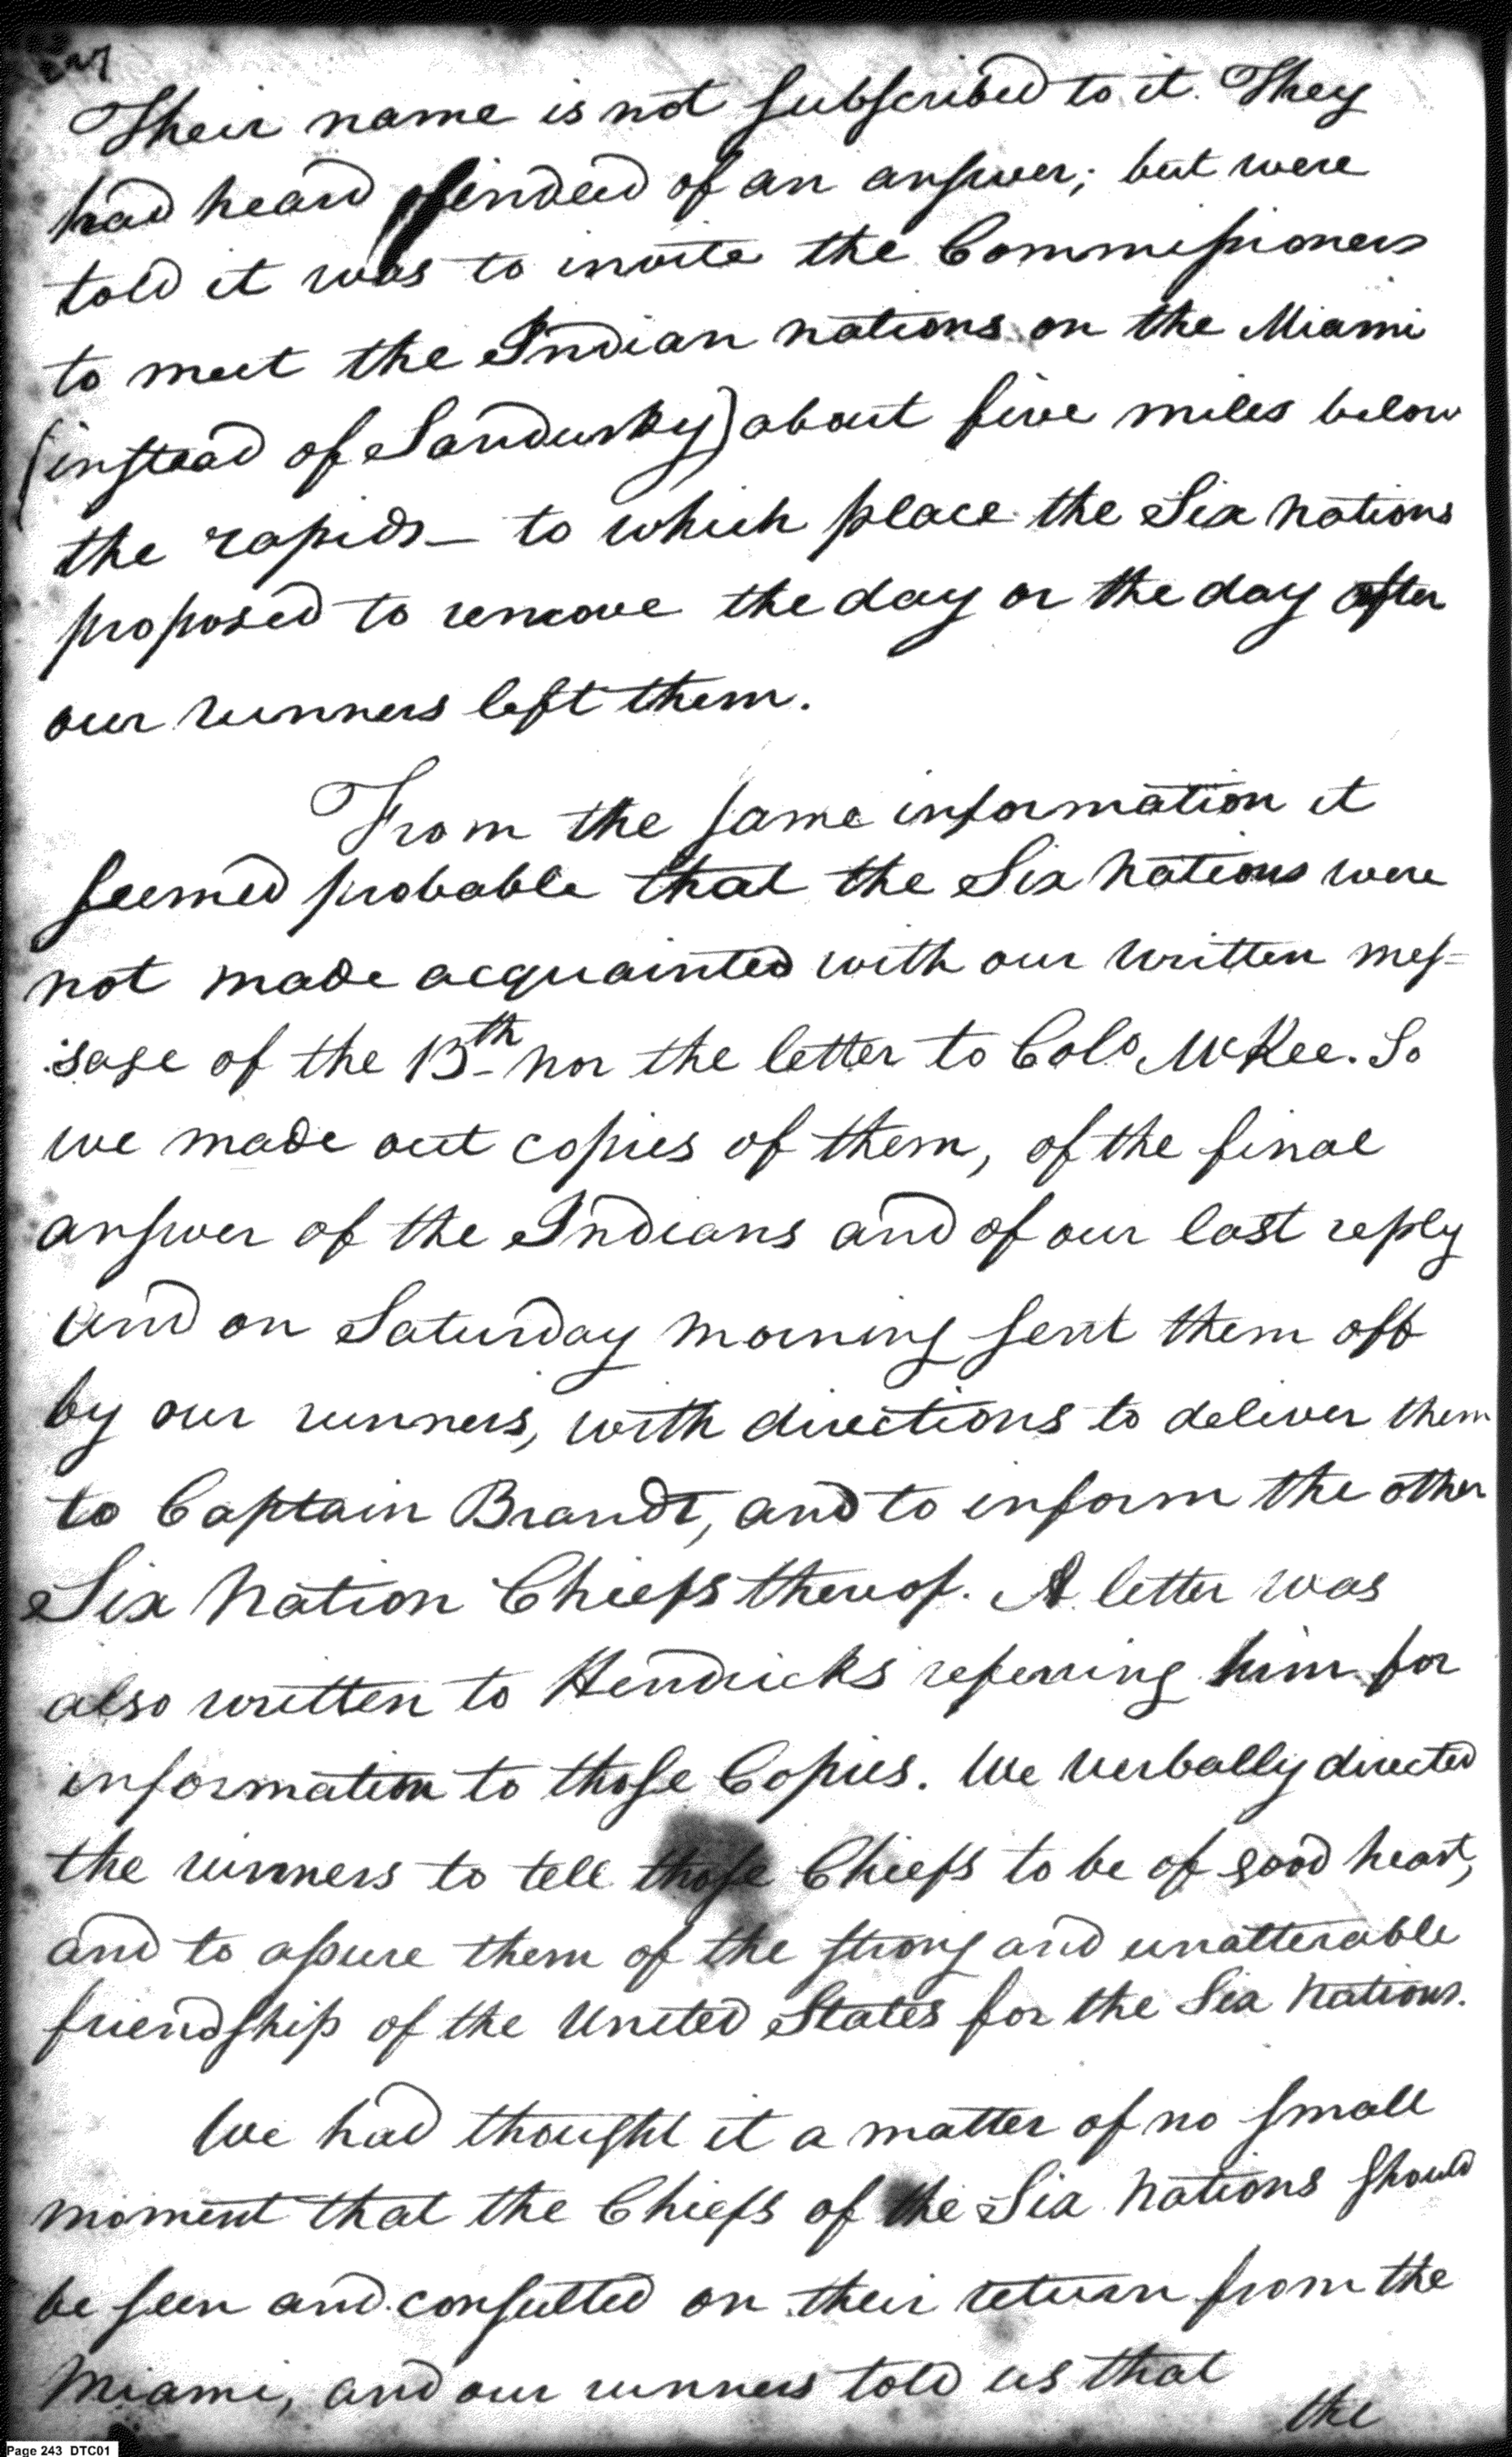 247
Their name is not subscribed to it. They
had heard indeed of an answer; but were
told it was to invite the Commissioners
to meet the Indian nations on the Miami
(instead of Sandusky) about five miles below
the rapids — to which place the Six Nations
proposed to remove the day or the day after
our runners left them.
From the same information it
seemed probable that the Six Nations were
not made acquainted with our written mes=
sage of the 13th nor the letter to Colo McKee. So
we made out copies of them, of the final
answer of the Indians and of our last reply
and on Saturday morning sent them off
by our runners, with directions to deliver them
to Captain Brandt, and to inform the other
Six Nation Chiefs thereof. A letter was
also written to Hendricks refering him for
information to those Copies. We verbally directed
the runners to tell those Chiefs to be of good heart,
and to assure them of the strong and unatterable
friendship of the United States for the Six Nations.
We had thought it a matter of no small
moment that the Chiefs of the Six Nations should
be seen and consulted on their return from the
Miami, and our runners told us that
the
Page 243 DTC01